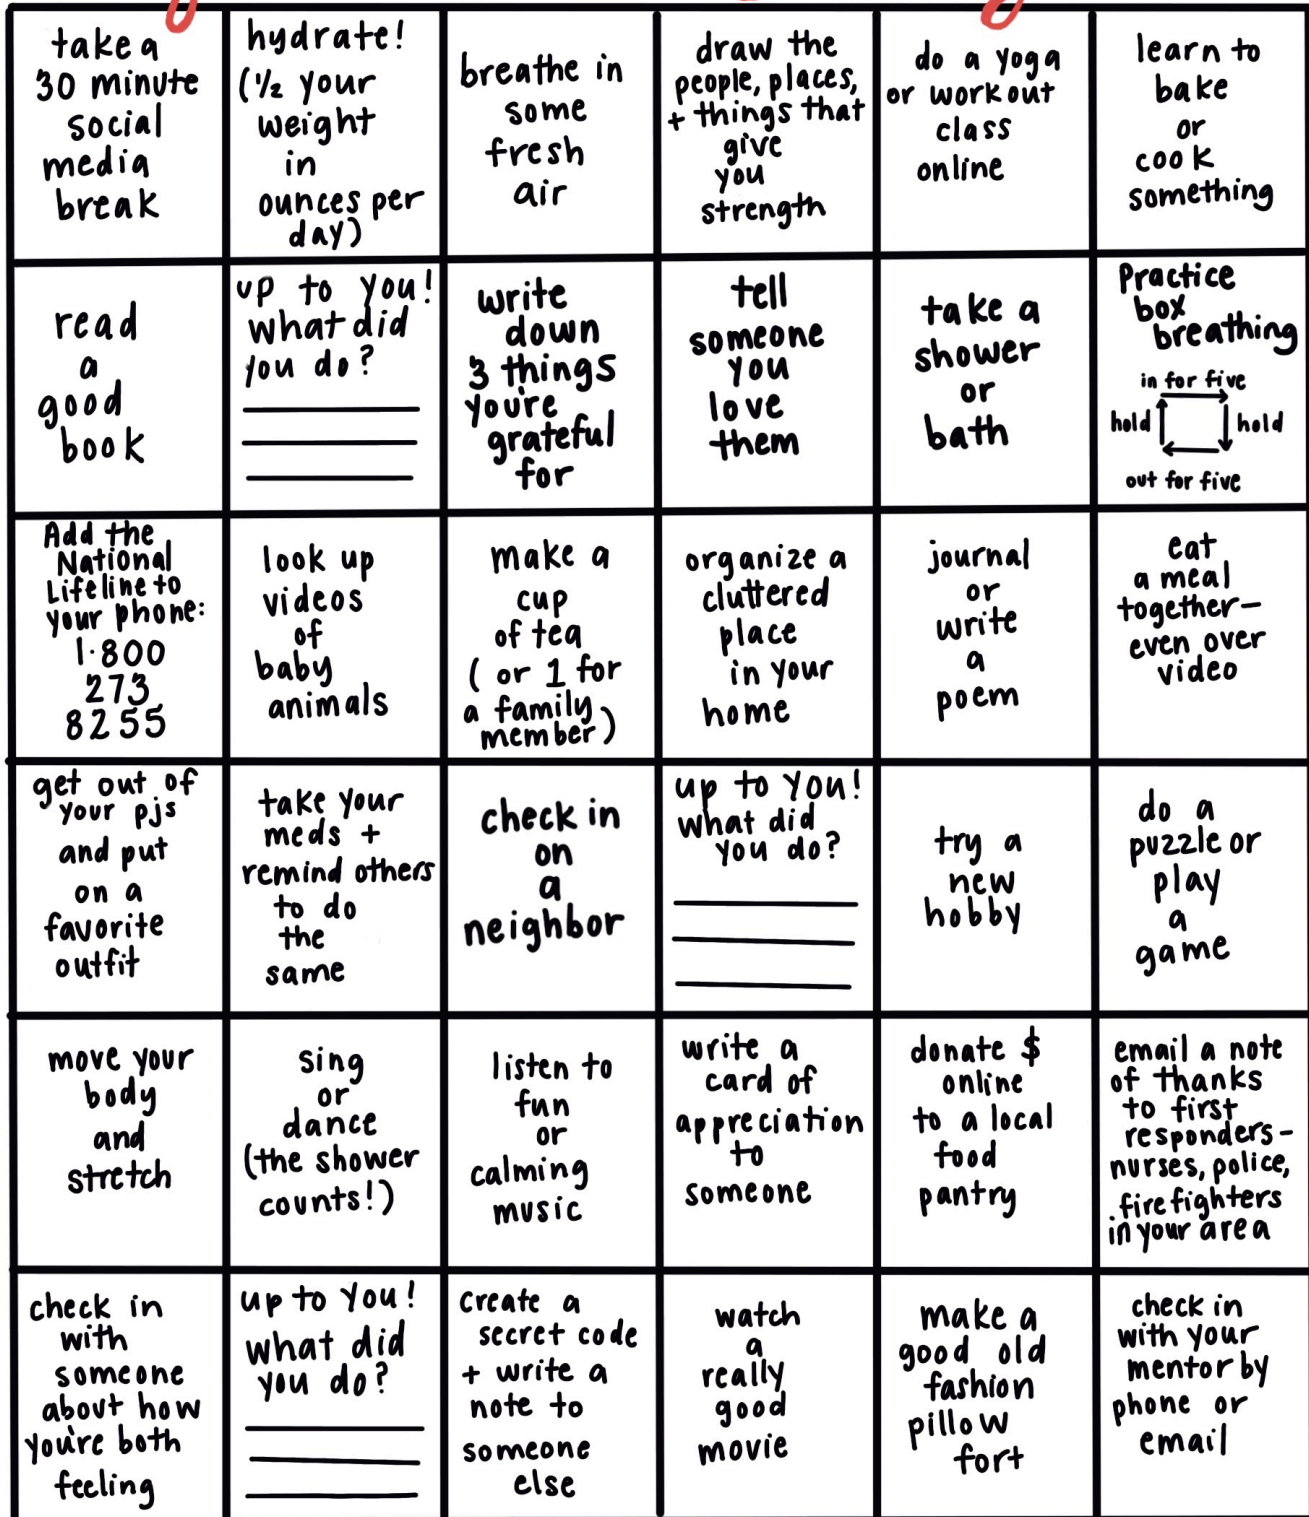 take a
30 minute
social
media
break
hydrate!
(½ your
weight
in
ounces per
day)
breathe in
some
fresh
air
draw the
people, places,
+ things that
give
you
strength
do a yoga
or workout
class
online
learn to
bake
or
cook
something
read
a
good
book
up to you!
what did
you do?
write
down
3 things
you're
grateful
for
tell
someone
you
love
them
take a
shower
or
bath
Practice
box
breathing
in for five
hold hold
out for five
Add the
National
Lifeline to
your phone:
1·800
273
8255
look up
videos
of
baby
animals
make a
cup
of tea
( or 1 for
a family
member)
organize a
cluttered
place
in your
home
journal
or
write
a
poem
eat
a meal
together—
even over
video
get out of
your pjs
and put
on a
favorite
outfit
take your
meds +
remind others
to do
the
same
check in
on
a
neighbor
up to you!
what did
you do?
try a
new
hobby
do a
puzzle or
play
a
game
move your
body
and
stretch
sing
or
dance
(the shower
counts!)
listen to
fun
or
calming
music
write a
card of
appreciation
to
someone
donate $
online
to a local
food
pantry
email a note
of thanks
to first
responders-
nurses, police,
firefighters
in your area
check in
with
someone
about how
you're both
feeling
up to you!
what did
you do?
create a
secret code
+ write a
note to
someone
else
watch
a
really
good
movie
make a
good old
fashion
pillow
fort
check in
with your
mentor by
phone or
email